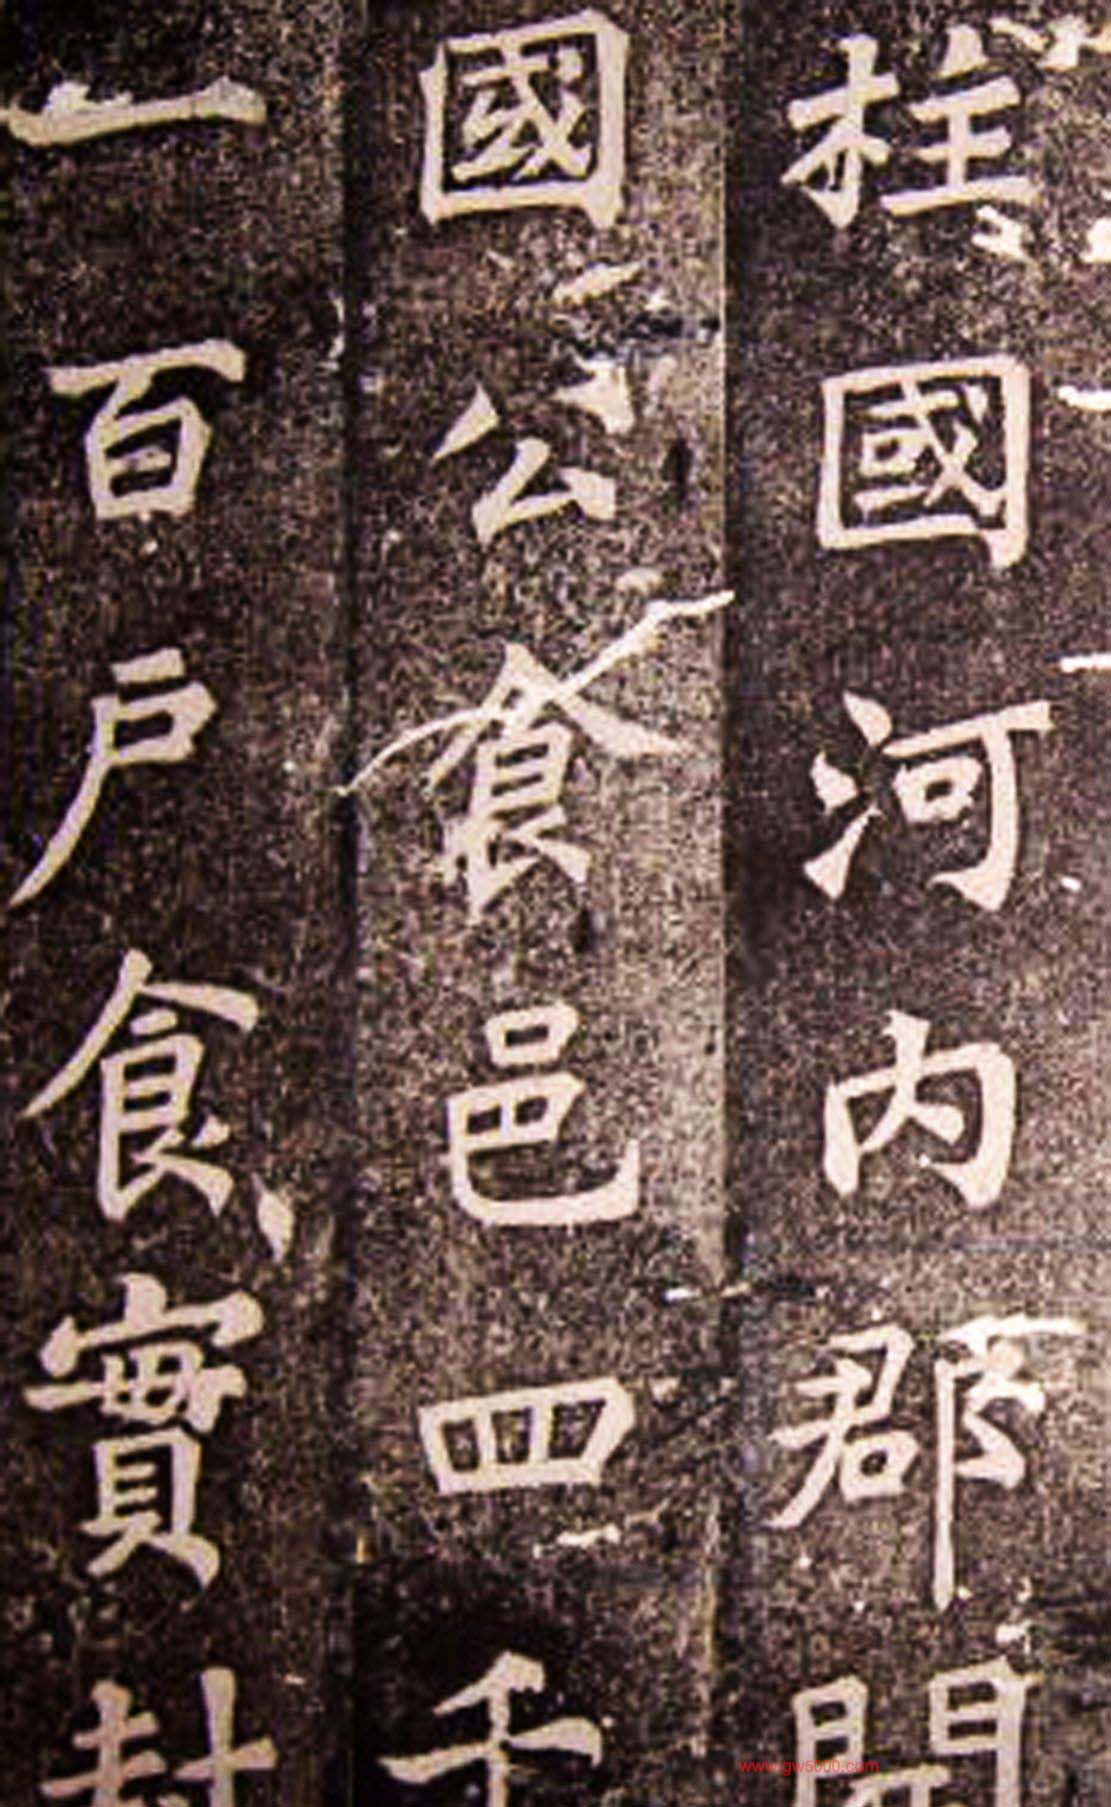 柱國河內郡開
國公食邑四千
一百戶食實封
www.gw5000.com